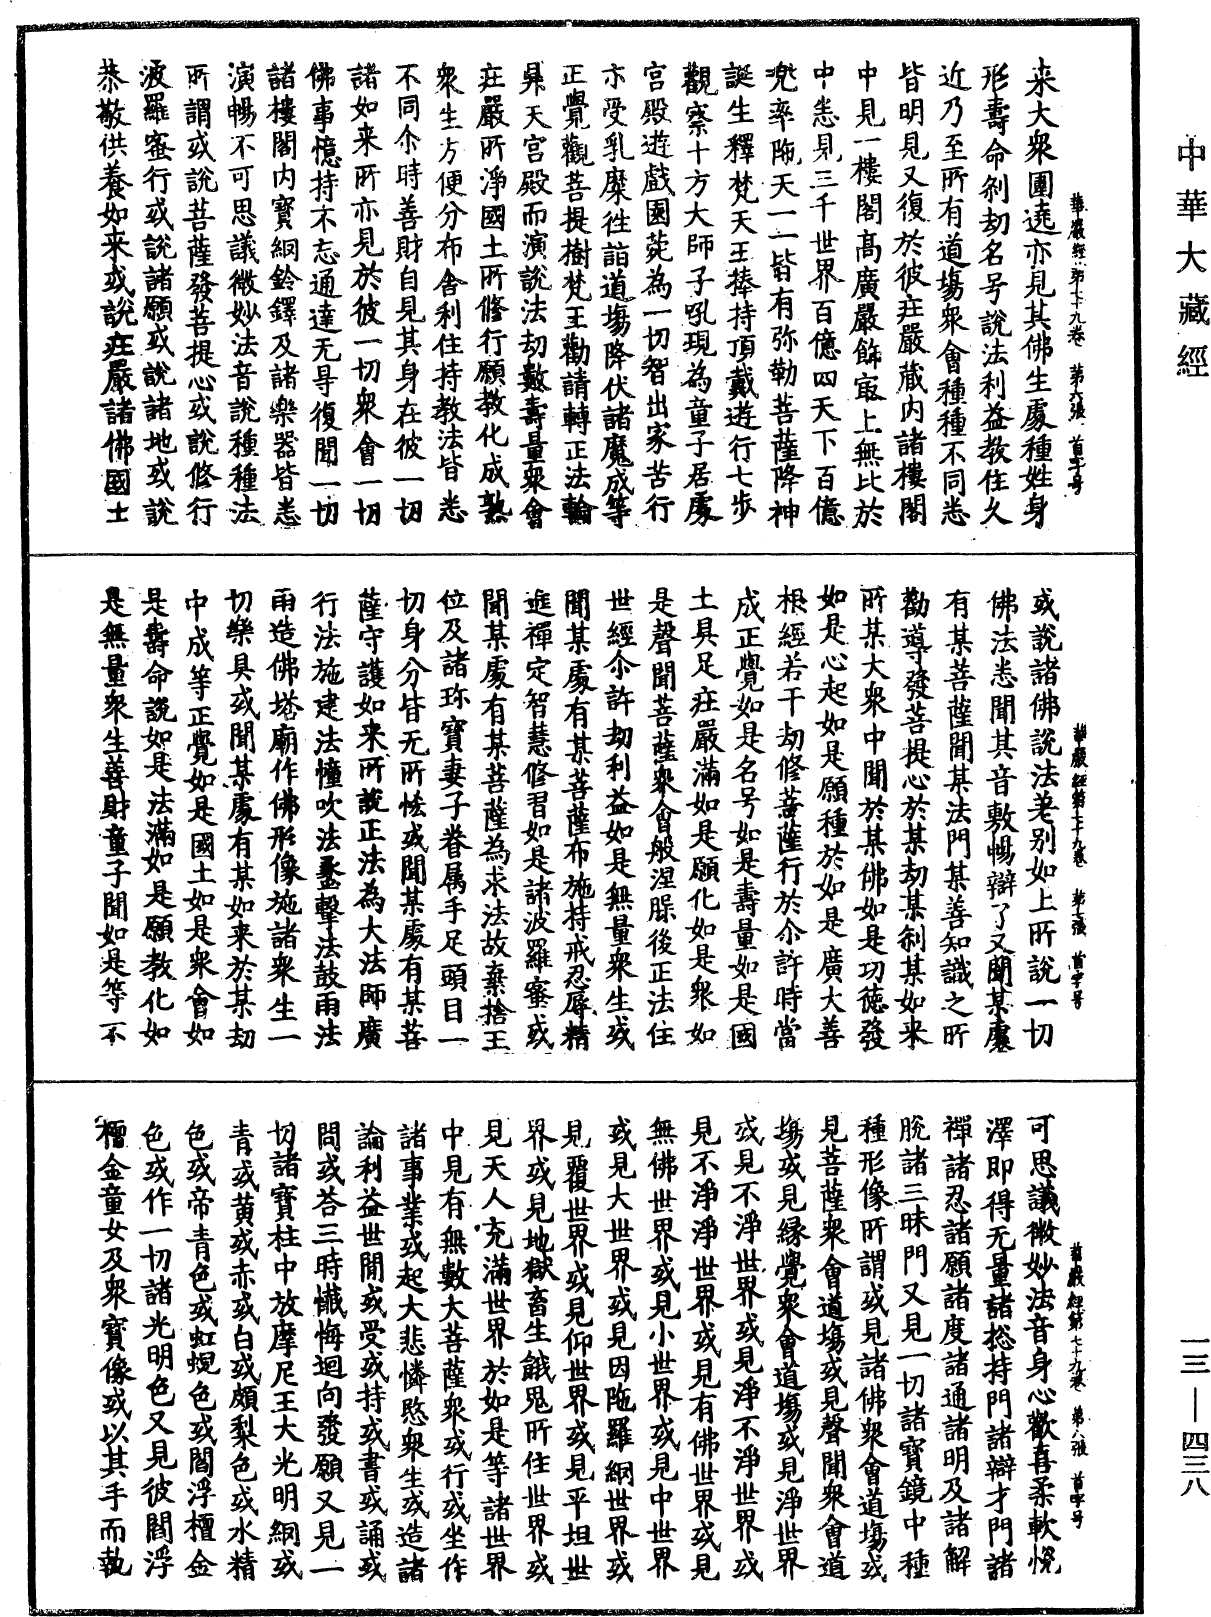 中華大藏經
華嚴經第七十九卷 第六張 首字号
来大衆圍遶亦見其佛生處種姓身
形壽命刹劫名号說法利益教住久
近乃至所有道塲衆會種種不同悉
皆明見又復於彼庄嚴藏内諸樓閣
中見一樓閣髙廣嚴飾冣上無比於
中悉見三千世界百億四天下百億
兜率陁天一一皆有弥勒菩薩降神
誕生釋梵天王捧持頂戴遊行七步
觀察十方大師子吼現為童子居處
宮殿遊戲園菀為一切智出家苦行
亦受乳糜往詣道塲降伏諸魔成等
正覺觀菩提樹梵王勸請轉正法輪
昇天宮殿而演說法劫數壽量衆會
庄嚴所淨國土所修行願教化成熟
衆生方便分布舎利住持教法皆悉
不同尒時善財自見其身在彼一切
諸如来所亦見於彼一切衆會一切
佛事憶持不忘通達无㝵復聞一切
諸樓閣内寳網鈴鐸及諸樂器皆悉
演暢不可思議微妙法音說種種法
所謂或說菩薩發菩提心或說修行
波羅蜜行或說諸願或說諸地或說
恭敬供養如来或說庄嚴諸佛國土
華嚴經第七十九卷 第七張 首字号
或說諸佛說法差别如上所說一切
佛法悉聞其音敷暢辯了又聞某處
有某菩薩聞某法門某善知識之所
勸導發菩提心於某劫某刹某如来
所某大衆中聞於某佛如是功徳發
如是心起如是願種於如是廣大善
根經若干劫修菩薩行於尒許時當
成正覺如是名号如是壽量如是國
土具足庄嚴滿如是願化如是衆如
是聲聞菩薩衆會般涅脲後正法住
世經尒許劫利益如是無量衆生或
聞某處有某菩薩布施持戒忍辱精
進禪定智慧修習如是諸波羅蜜或
聞某處有某菩薩為求法故棄捨王
位及諸珎寳妻子眷属手足頭目一
切身分皆无所恡或聞某處有某菩
薩守護如来所說正法為大法師廣
行法施建法幢吹法蠡擊法鼓雨法
雨造佛塔廟作佛形像施諸衆生一
切樂具或聞某處有某如来於某劫
中成等正覺如是國土如是衆會如
是壽命說如是法滿如是願教化如
是無量衆生善財童子聞如是等不
華嚴經第七十九卷 第八張 首字号
可思議微妙法音身心歡喜柔軟恱
澤即得无量諸揔持門諸辯才門諸
禪諸忍諸願諸度諸通諸明及諸解
脫諸三昧門又見一切諸寳鏡中種
種形像所謂或見諸佛衆會道塲或
見菩薩衆會道塲或見聲聞衆會道
塲或見縁覺衆會道塲或見淨世界
或見不淨世界或見淨不淨世界或
見不淨淨世界或見有佛世界或見
無佛世界或見小世界或見中世界
或見大世界或見因陁羅網世界或
見覆世界或見仰世界或見平坦世
界或見地獄畜生餓鬼所住世界或
見天人充滿世界於如是等諸世界
中見有無數大菩薩衆或行或坐作
諸事業或起大悲憐愍衆生或造諸
論利益世間或受或持或書或誦或
問或荅三時懴悔迴向發願又見一
切諸寳柱中放摩尼王大光明網或
青或黄或赤或白或頗梨色或水精
色或帝青色或虹蜺色或閻浮檀金
色或作一切諸光明色又見彼閻浮
檀金童女及衆寳像或以其手而執
一三—四三八